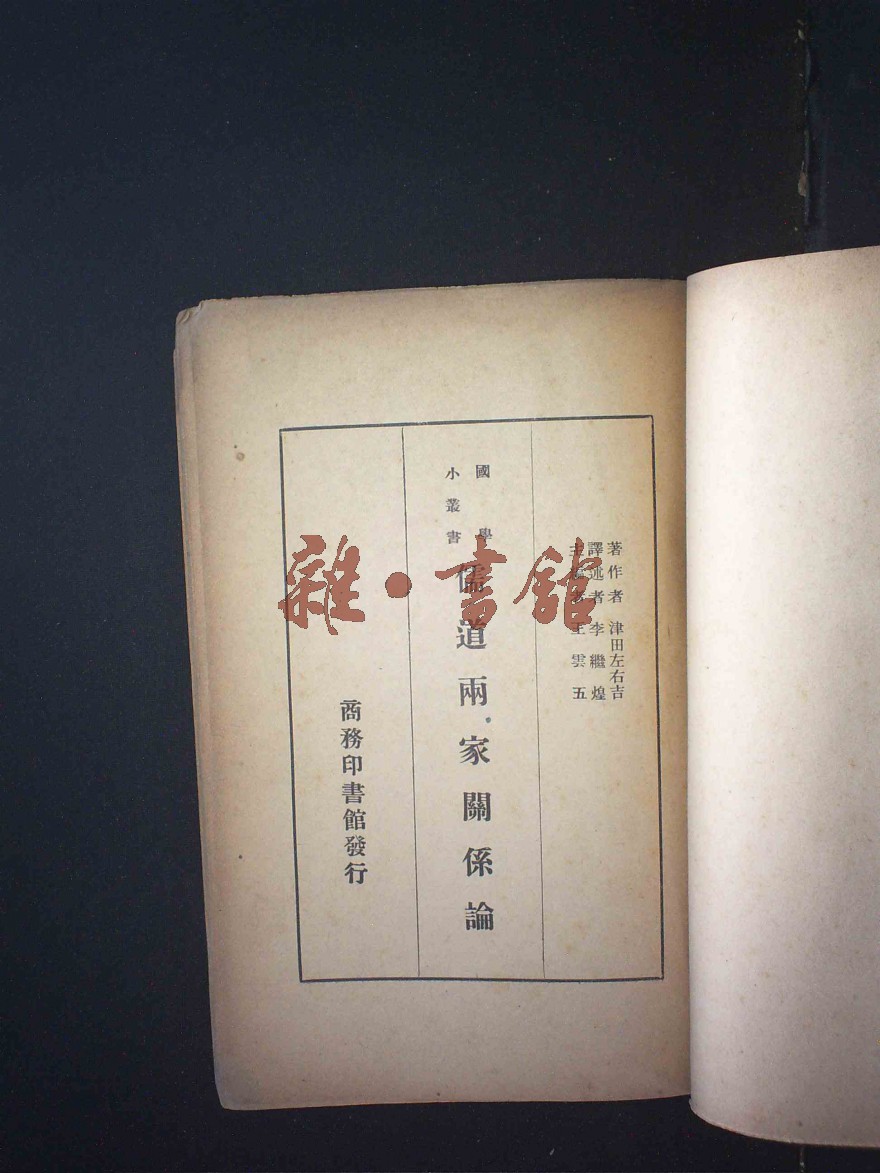 著作者 津田左右吉
譯述者 李繼煌
主編者 王雲五
國學
小叢書
儒道兩家關係論
商務印書館發行
雜·書館